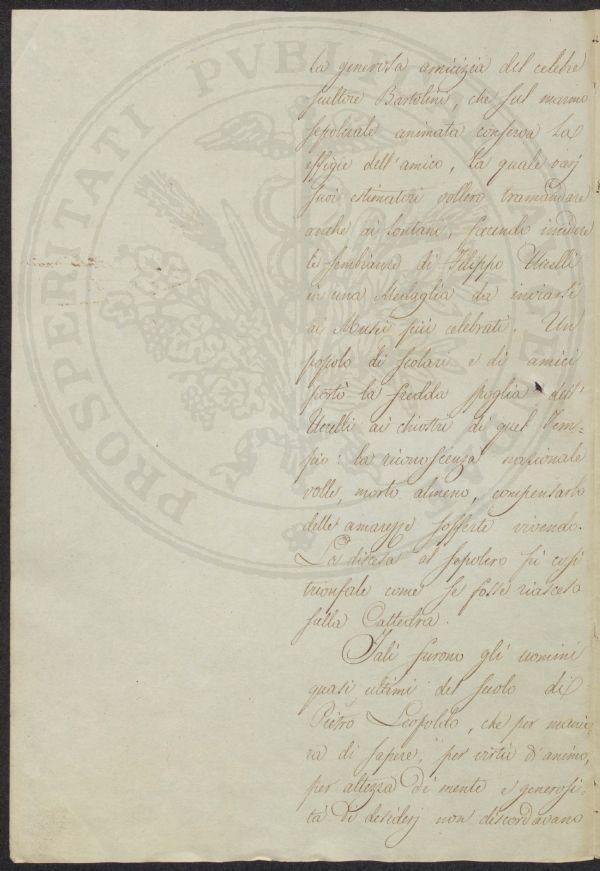 la generosa amicizia del celebre
scultore Bartolini, che sul marmo
sepolcrale animata conserva la
effigie dell'amico, la quale varj
suoi estimatori vollero tramandare
anche ai lontani, facendo incidere
le sembianze di Filippo Uccelli
in una Medaglia da inviarsi
ai Musei più celebrati. Un
popolo di scolari e di amici
portò la fredda spoglia dell'
Uccelli ai chiostri di quel Tem-
pio: la riconoscenza nazionale
volle, morto almeno, compensarlo
delle amarezze sofferte vivendo.
La discesa al sepolcro fù così
trionfale come se fosse riasceso
sulla Cattedra.
Tali furono gli uomini
quasi ultimi del secolo di
Pietro Leopoldo, che per manie-
ra di sapere, per virtù d'animo,
per altezza di mente e generosi-
tà di desiderj non discordavano
PROSPERITATI PVBLICAE